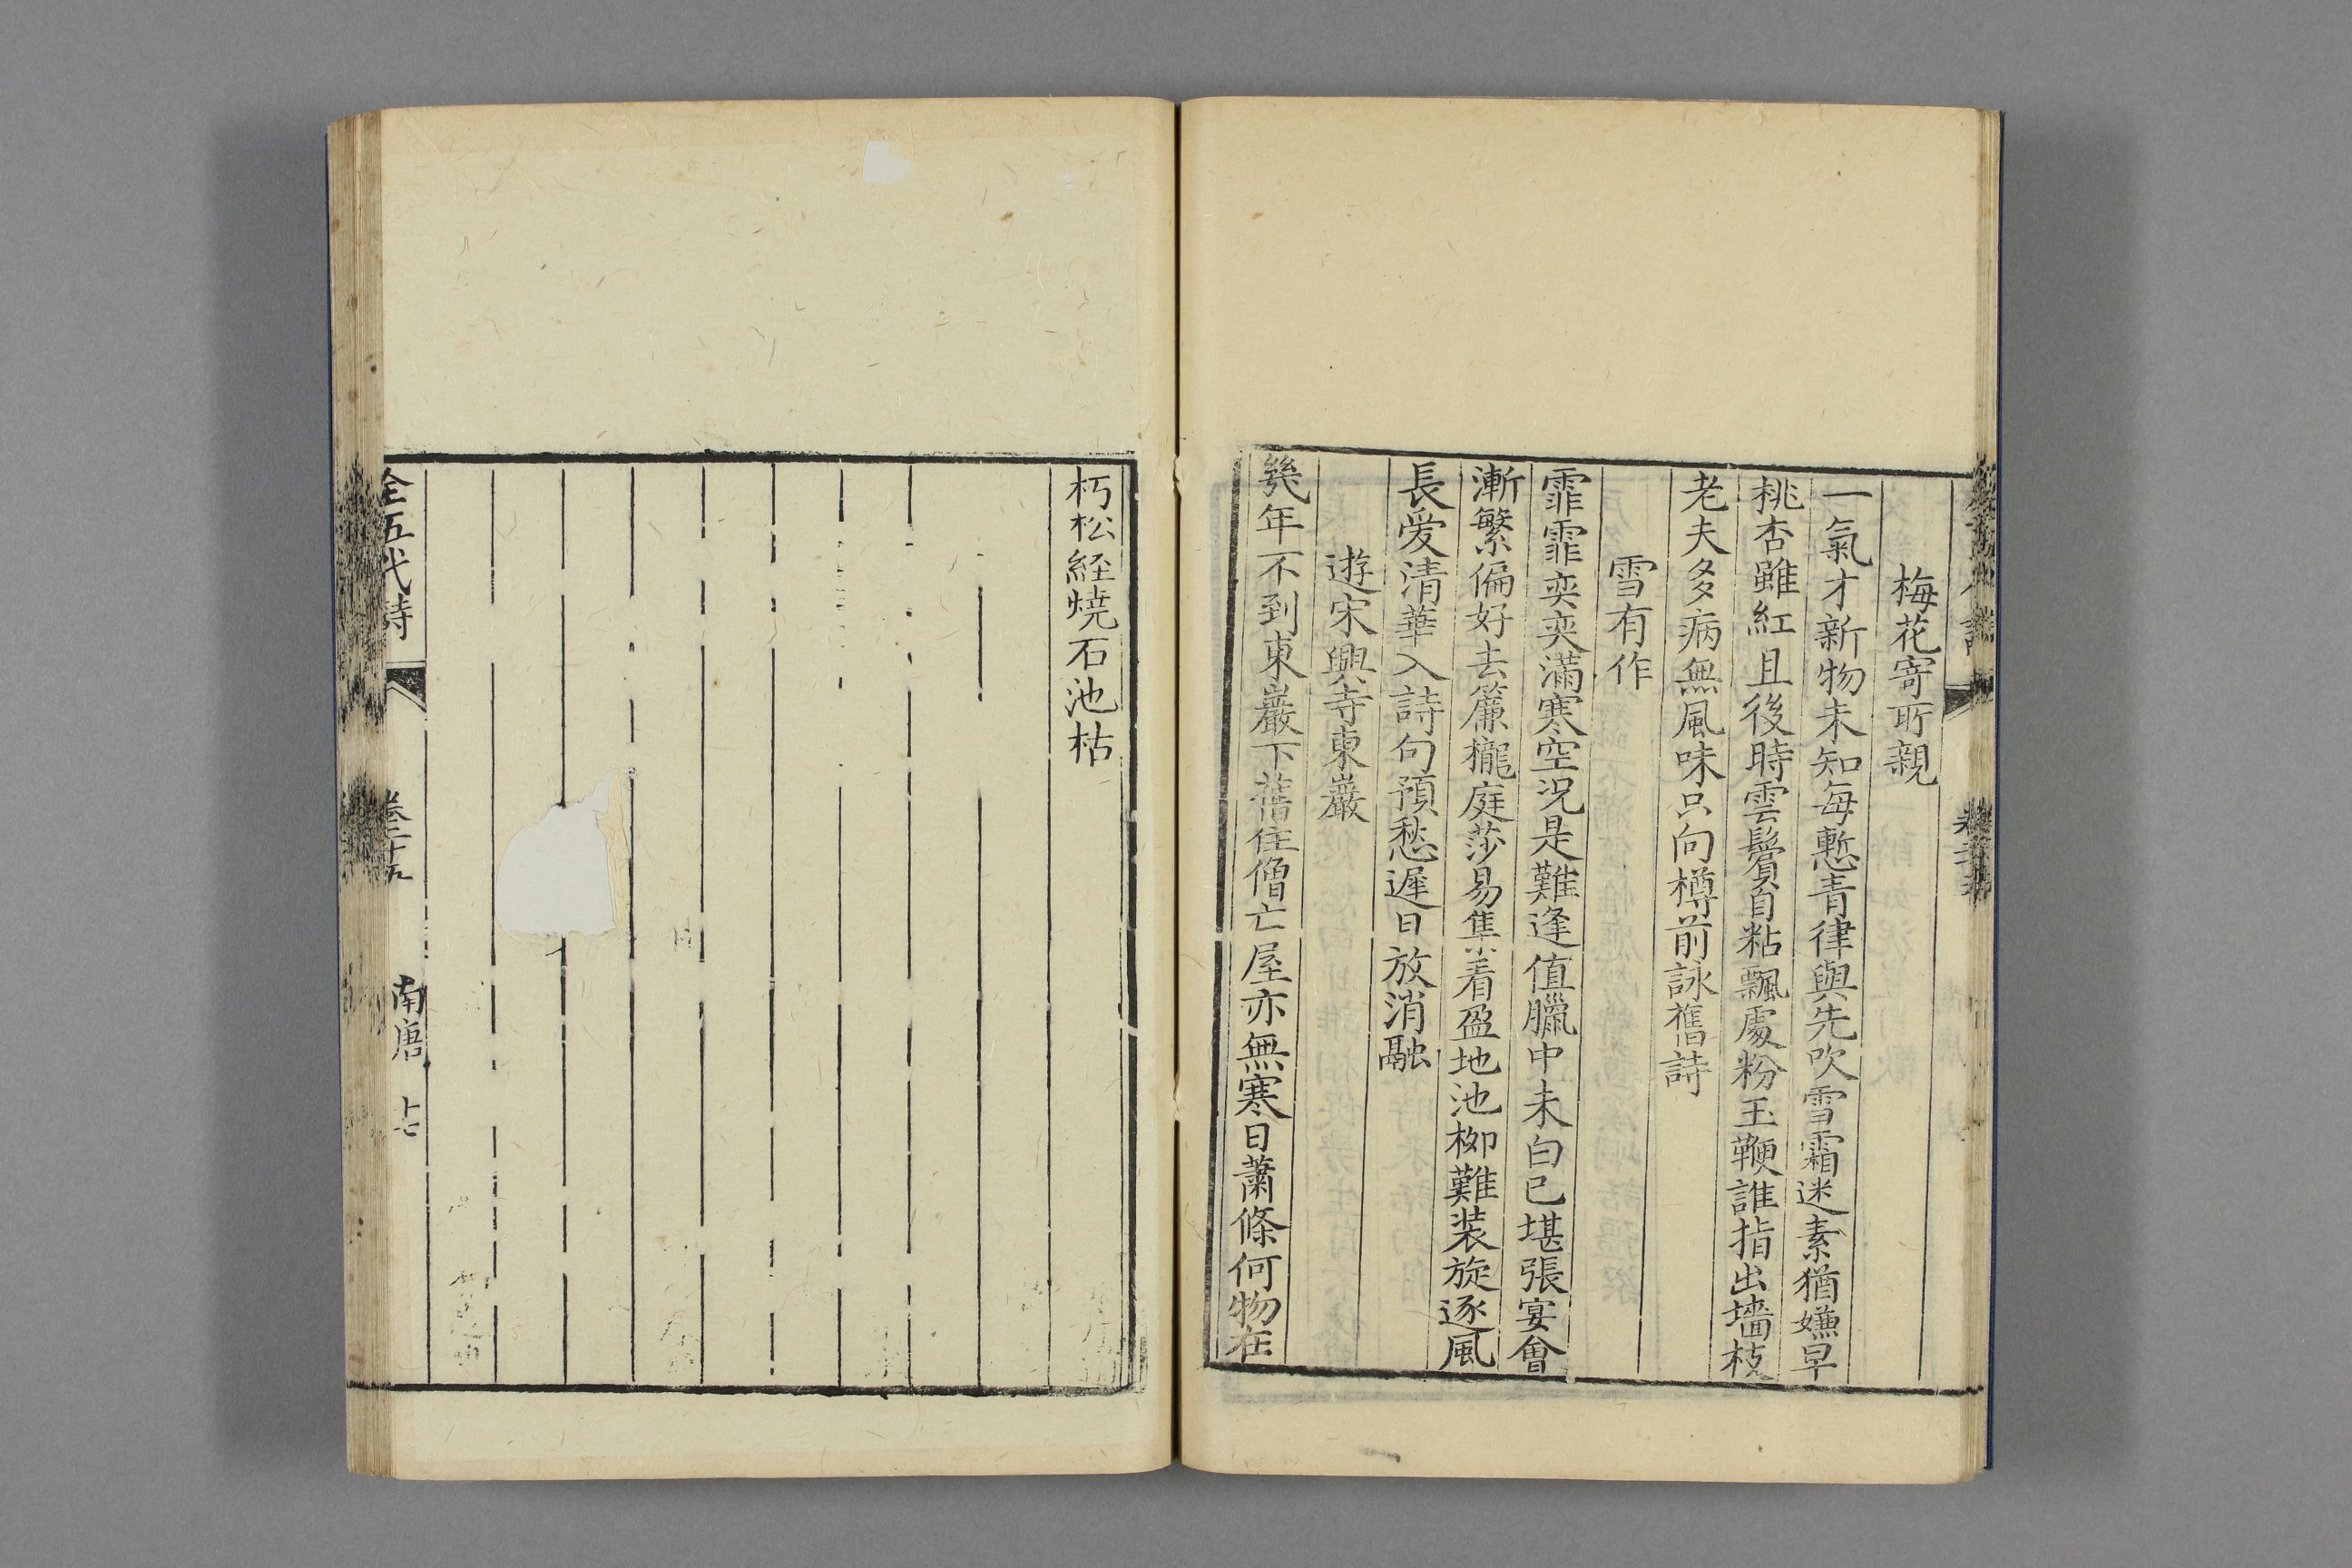 梅花寄所親
一氣才新物未知每慙青律與先吹雪霜迷素猶嫌早
桃杏雖紅且後時雲鬢自粘飄處粉玉鞭誰指出墻枝
老夫多病無風味只向樽前詠舊詩
雪有作
霏霏奕奕滿寒空况是難逢值臘中未白已堪張宴會
漸繁偏好去簾櫳庭莎易集看盈地池栁難装旋逐風
長爱清華入詩句預愁遲日放消融
遊宋興寺東巖
㡬年不到東巖下舊住僧亡屋亦無寒日蕭條何物在
朽松経燒石池枯
全五代詩
卷二十九
南唐
十七